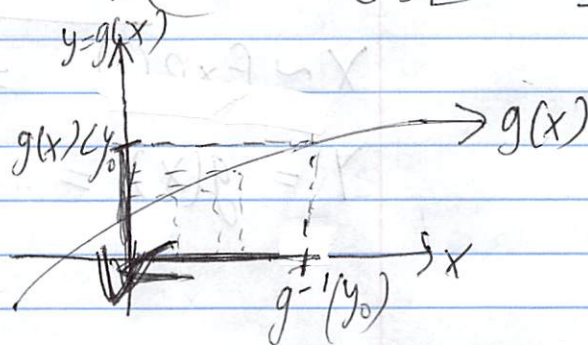 y=g(x)
g(x)<y₀
g(x)
x
g⁻¹(y₀)